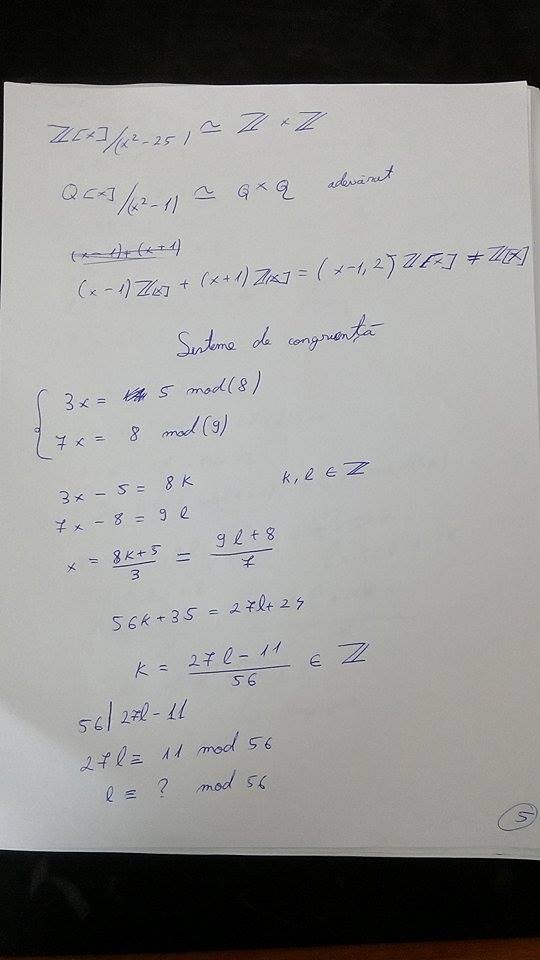 ℤ[x]/(x²-25) ≃ ℤ × ℤ
Q[x]/(x²-1) ≃ Q × Q adevărat
(x-1)+(x+1)
(x-1)ℤ[x] + (x+1)ℤ[x] = (x-1, 2)ℤ[x] ≠ ℤ[x]
Sisteme de congruență
3x = 5 mod(8)
7x = 8 mod(9)
3x - 5 = 8k k, l ∈ ℤ
7x - 8 = 9l
x = (8k+5)/3 = (9l+8)/7
56k+35 = 27l+24
k = (27l-11)/56 ∈ ℤ
56 | 27l-11
27l ≡ 11 mod 56
l ≡ ? mod 56
5